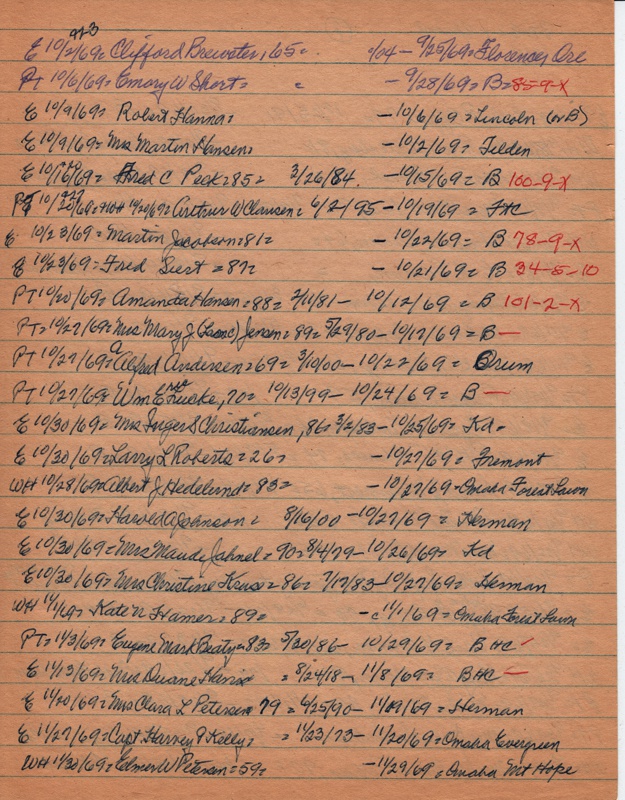 9 23
E 10/2/69= Clifford Brewster, 65=. /04 - 9/25/69= Florence, Ore
PT 10/6/69= Emory W Short= = - 9/28/69= B= 85-9-X
E 10/9/69= Robert Hanna= - 10/6/69= Lincoln (or B)
E 10/9/69= Mrs Martin Hansen= - 10/2/69= Tilden
E 10/16/69= Fred C Peck=85= 3/26/84. - 10/15/69= B 100-9-X
PT E 10/20/69= WH 10/20/69= Arthur W Clausen= 6/2/95 - 10/19/69 = FHC
E 10/23/69= Martin Jacobsen=81= - 10/22/69= B 78-9-X
E 10/23/69= Fred Siert =87= - 10/21/69= B 34-5-10
PT 10/20/69= Amanda Hansen=88= 2/11/81 - 10/12/69 = B 101-2-X
PT= 10/27/69= Mrs Mary J (Isaac) Jensen=89= 5/29/80 - 10/17/69 = B —
PT 10/27/69= Alfred Andersen=69= 3/10/00 - 10/22/69 = Orum
PT 10/27/69= Wm E Lucke, 70= 10/13/99 - 10/24/69 = B —
E 10/30/69= Mrs Inger S Christiansen, 86= 3/2/83 - 10/25/69= Kd=
E 10/30/69= Larry L Roberts=26= - 10/27/69= Fremont
WH 10/28/69= Albert J Hedelund= 83= - 10/27/69= Omaha Forest Lawn
E 10/30/69= Harold A Johnson= 8/16/00 - 10/27/69= Herman
E 10/30/69= Mrs Maude Jahnel=90= 8/4/79 - 10/26/69= Kd
E 10/30/69= Mrs Christine Kruse= 86= 7/17/83 - 10/27/69= Herman
WH 11/1/69= Kate N Hamer=89= - c 11/1/69= Omaha Forest Lawn
PT= 11/3/69= Eugene Mark Beaty=83= 5/30/86 - 10/29/69= BHC
E 11/13/69= Mrs Duane Harris = 8/24/18 - 11/8/69= BHC —
E 11/20/69= Mrs Clara L Petersen= 79 = 6/25/90 - 11/19/69= Herman
E 11/27/69= Capt. Harvey P Kelly= = 11/23/73 - 11/20/69= Omaha Evergreen
WH 11/30/69= Elmer W Petersen=59= - 11/29/69= Omaha Mt Hope